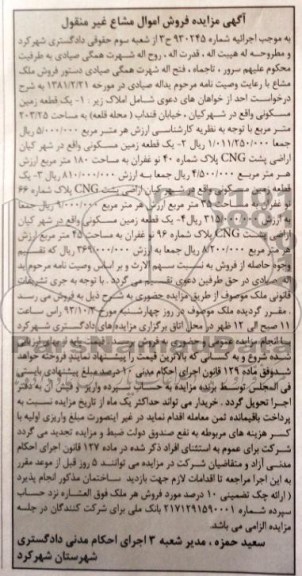 آگهی مزایده فروش اموال مشاع غیر منقول
به موجب اجرائیه شماره ۹۳۰۲۴۵ ح۳ از شعبه سوم حقوقی دادگستری شهرکرد
و مطروحه له هیبت اله ، قدرت اله ، روح اله شهرت همگی صیادی به طرفیت
محکوم علیهم سرور ، تاجماه ، فتح اله شهرت همگی صیادی دستور فروش ملک
مشاع با رعایت وصیت نامه مرحوم یداله صیادی در مورخه ۱۳۸۱/۲/۲۱ به شرح
درخواست احد از خواهان های دعوی شامل املاک زیر . ۱- یک قطعه زمین
مسکونی واقع در شهر کیان ، خیابان قنداب ( محله قلعه) به مساحت ۲۰۲/۲۵
متر مربع با توجه به نظریه کارشناسی ارزش هر متر مربع ۵/۰۰۰/۰۰۰ ریال
جمعا ۱/۰۱۱/۲۵۰/۰۰۰ ریال ۲- یک قطعه زمین مسکونی واقع در شهر کیان
اراضی پشت CNG پلاک شماره ۴۰ نو غفران به مساحت ۱۸۰ متر مربع ارزش
هر متر مربع ۴/۵۰۰/۰۰۰ ریال جمعا به ارزش ۸۱۰/۰۰۰/۰۰۰ ریال ۳- یک
قطعه زمین مسکونی واقع در شهر کیان اراضی پشت CNG پلاک شماره ۶۶
نو غفران به مساحت ۳۵ متر مربع ارزش هر متر مربع ۹/۰۰۰/۰۰۰ ریال جمعا
به ارزش ۳۱۵/۰۰۰/۰۰۰ ریال ۴- یک قطعه زمین مسکونی واقع در شهر کیان
اراضی پشت CNG پلاک شماره ۹۶ نو غفران به مساحت ۴۵ متر مربع ارزش
هر متر مربع ۸/۲۰۰/۰۰۰ ریال جمعا به ارزش ۳۶۹/۰۰۰/۰۰۰ ریال که تقسیم
وجوه حاصله از فروش به نسبت سهم الارث و بر اساس وصیت نامه مرحوم ید
اله صیادی در حق طرفین دعوی تقسیم می گردد . با توجه به جری تشریفات
قانونی ملک موصوف از طریق مزایده حضوری به شرح ذیل به فروش می رسد
. مقرر گردیده ملک موصوف در روز چهارشنبه مورخ ۹۳/۱۰/۳ راس ساعت
۱۱ صبح الی ۱۲ ظهر در محل اتاق برگزاری مزایده های دادگستری شهرکرد
با انجام مزایده عمومی و حضوری به فروش برسد. مزایده از بهای ارزیابی
شده شروع و به کسانی که بالاترین قیمت را پیشنهاد نمایند فروخته خواهد
شد وفق ماده ۱۲۹ قانون اجرای احکام مدنی ۱۰ درصد مبلغ پیشنهادی بایستی
فی المجلس توسط برنده مزایده به حساب سپرده واریز و فیش آن به دفتر
اجرا تحویل گردد . خریدار می تواند حداکثر یک ماه از تاریخ مزایده نسبت به
پرداخت باقیمانده ثمن معامله اقدام نماید در غیر اینصورت مبلغ واریزی اولیه با
کسر هزینه های مربوطه به نفع صندوق دولت ضبط و مزایده تجدید می گردد
شرکت برای عموم به استثنای افراد ذکر شده در ماده ۱۲۷ قانون اجرای احکام
مدنی آزاد و متقاضیان شرکت در مزایده می توانند ۵ روز قبل از موعد مقرر
به این اجرا مراجعه تا اقدامات لازم جهت بازدید ساختمان مذکور انجام پذیرد
( ارائه چک تضمینی ۱۰ درصد مورد فروش هر ملک فوق الذکر نزد حساب
سپرده شماره ۲۱۷۱۲۹۱۵۹۰۰۱ بانک ملی برای شرکت کنندگان در جلسه
مزایده الزامی می باشد.
سعید حمزه ، مدیر شعبه ۳ اجرای احکام مدنی دادگستری
شهرستان شهرکرد